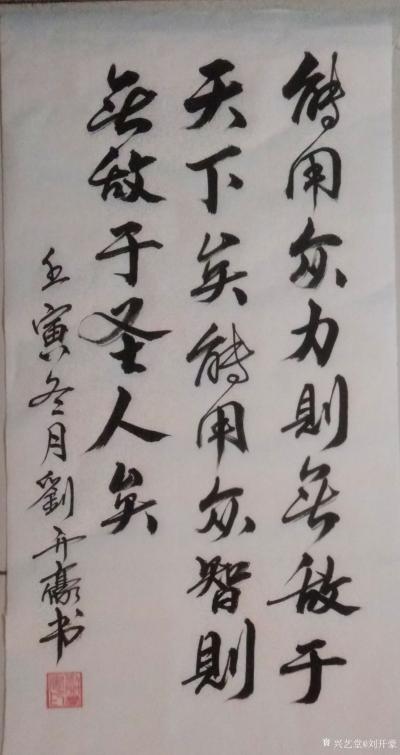 能用众力則無敌于
天下矣能用众智則
無敌于圣人矣
壬寅冬月劉开豪书
兴艺堂@刘开豪